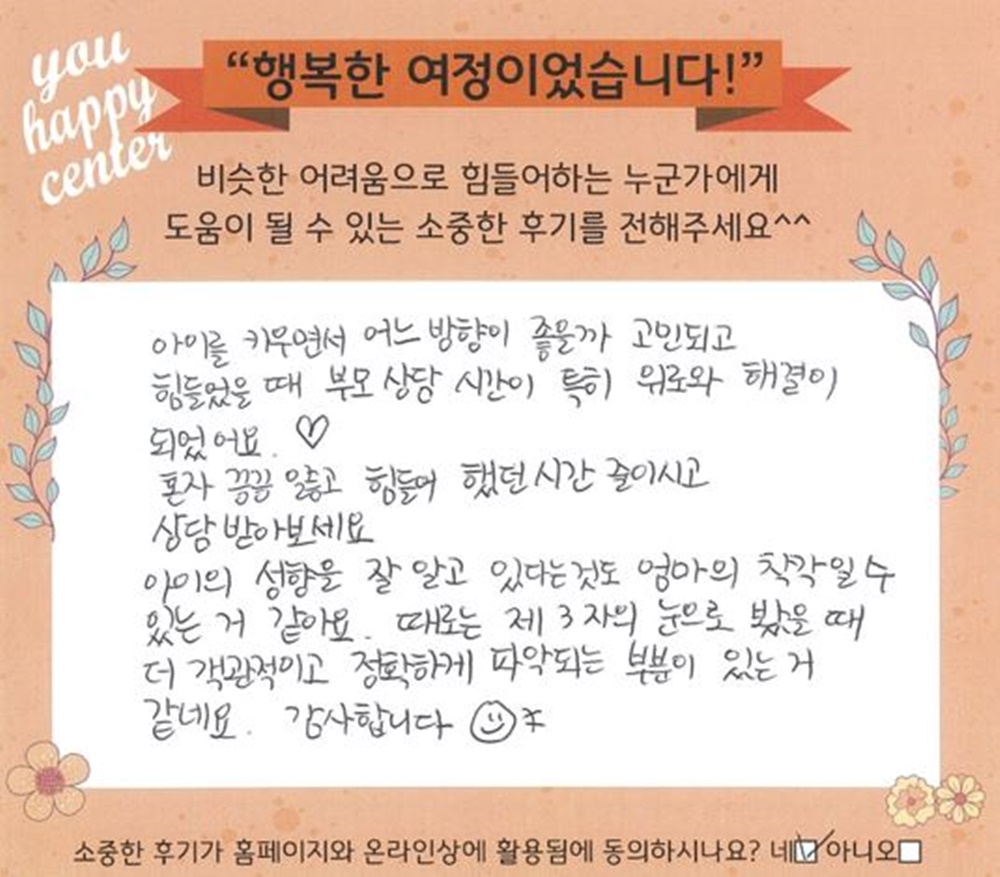 you
happy
center
“행복한 여정이었습니다!”
비슷한 어려움으로 힘들어하는 누군가에게
도움이 될 수 있는 소중한 후기를 전해주세요^^
아이를 키우면서 어느 방향이 좋을까 고민되고
힘들었을 때 부모 상담 시간이 특히 위로와 해결이
되었어요. ♡
혼자 끙끙 앓고 힘들어 했던 시간 줄이시고
상담 받아보세요
아이의 성향을 잘 알고 있다는것도 엄마의 착각일 수
있는 거 같아요. 때로는 제 3 자의 눈으로 봤을 때
더 객관적이고 정확하게 파악되는 부분이 있는 거
같네요. 감사합니다
소중한 후기가 홈페이지와 온라인상에 활용됨에 동의하시나요? 네☑ 아니오□